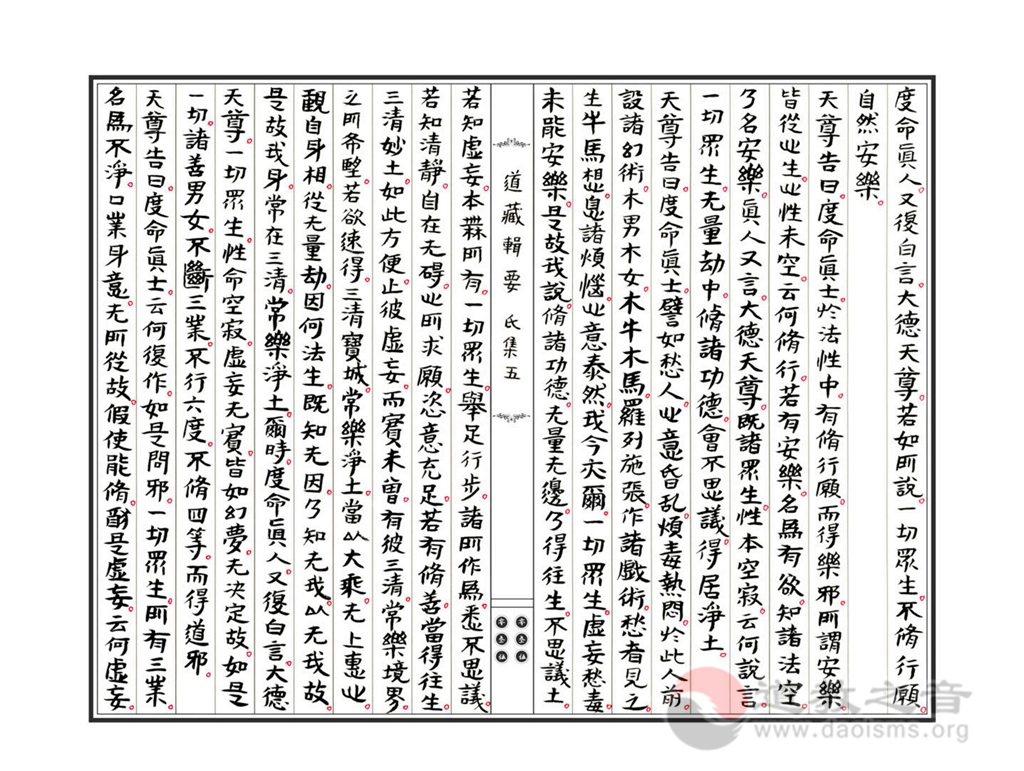 度命眞人又復白言大德天尊若如所說一切眾生不脩行願
自然安樂
天尊告曰度命眞士於法性中有脩行願而得樂邪所謂安樂
皆從心生心性未空云何脩行若有安樂名爲有欲知諸法空
乃名安樂眞人又言大德天尊既諸眾生性本空寂云何說言
一切眾生无量劫中脩諸功德會不思議得居淨土
天尊告曰度命眞士譬如愁人心意昏乱煩毒熱悶於此人前
設諸幻術木男木女木牛木馬羅列施張作諸戲術愁者見之
生牛馬想息諸煩惱心意泰然我今亦爾一切眾生虛妄愁毒
未能安樂是故我說脩諸功德无量无邊乃得往生不思議土
道藏輯要 氐集五
若知虛妄本無所有一切眾生舉足行步諸所作爲悉不思議
若知清靜自在无碍心所求願恣意充足若有脩善當得往生
三清妙土如此方便止彼虛妄而實未曾有彼三清常樂境界
之所希堅若欲速得三清寶城常樂淨土當以大乘无上惠心
觀自身相從无量劫因何法生既知无因乃知无我以无我故
是故我身常在三清常樂淨土爾時度命眞人又復白言大德
天尊一切眾生性命空寂虛妄无實皆如幻夢无決定故如是
一切諸善男女不斷三業不行六度不脩四等而得道邪
天尊告曰度命眞士云何復作如是問邪一切眾生所有三業
名爲不淨口業身意无所從故假使能脩酧是虛妄云何虛妄
道教之音
www.daoisms.org